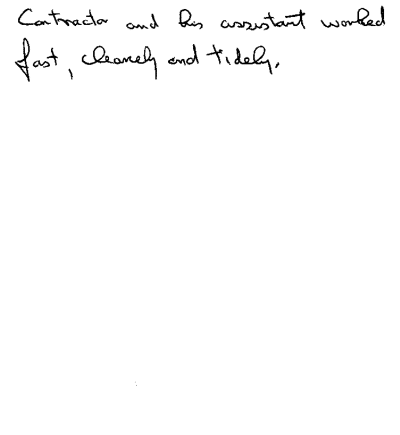 Contractor and his assistant worked
fast, cleanely and tidely.